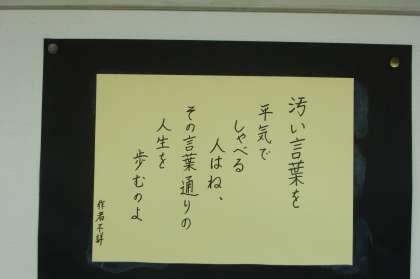 汚い言葉を
平気で
しゃべる
人はね、
その言葉通りの
人生を
歩むのよ
作者不詳